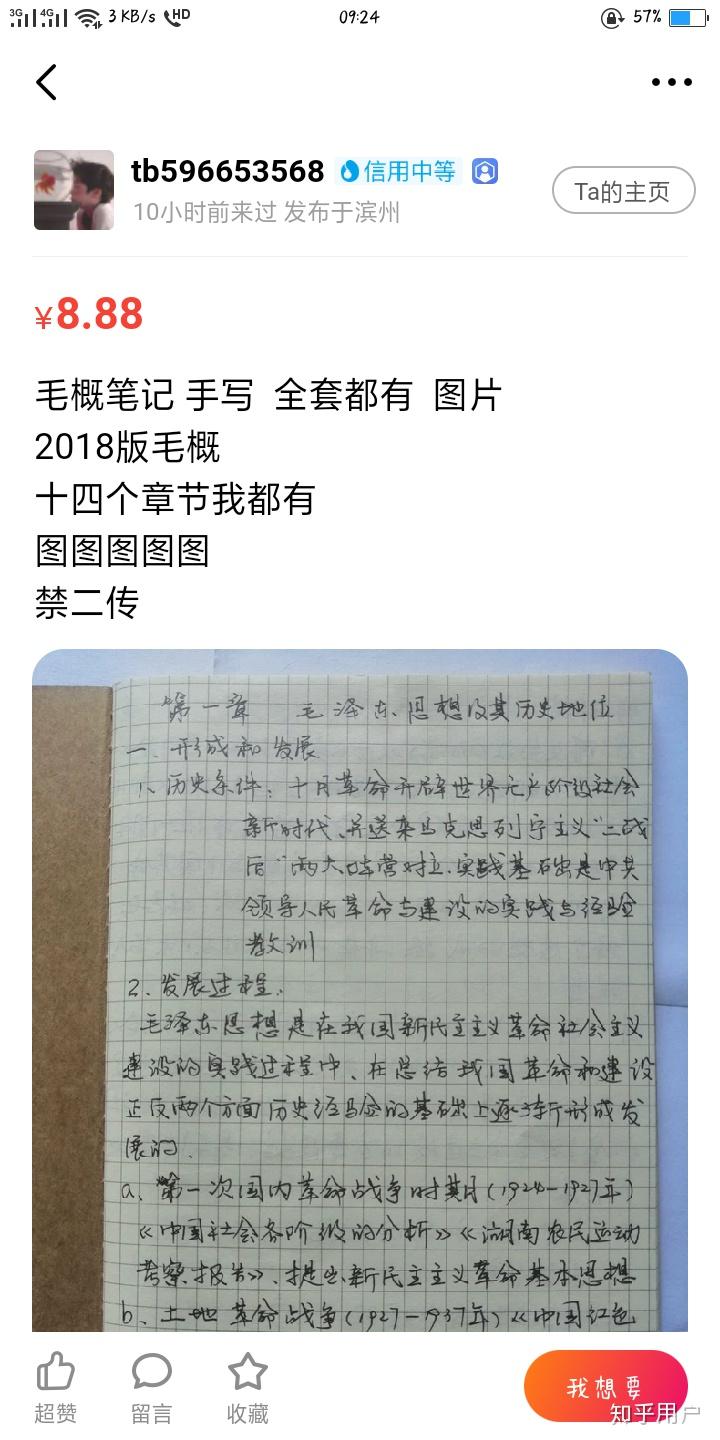 3G 4G 3 KB/s HD 09:24 57%
tb596653568 信用中等
Ta的主页
10小时前来过 发布于滨州
¥8.88
毛概笔记 手写 全套都有 图片
2018版毛概
十四个章节我都有
图图图图图
禁二传
第一章 毛泽东思想及其历史地位
一、形成和发展
1、历史条件：十月革命开辟世界无产阶级社会
新时代、并送来马克思列宁主义"二战
后"两大阵营对立.实践基础是中共
领导人民革命与建设的实践与经验
教训
2、发展过程.
毛泽东思想是在我国新民主主义革命社会主义
建设的实践过程中、在总结我国革命和建设
正反两个方面历史经验的基础上逐渐形成发
展的.
a、第一次国内革命战争时期(1924-1927年)
《中国社会各阶级的分析》《湖南农民运动
考察报告》、提出新民主主义革命基本思想
b、土地革命战争(1927-1937年)《中国红色
超赞 留言 收藏
我想要
知乎用户